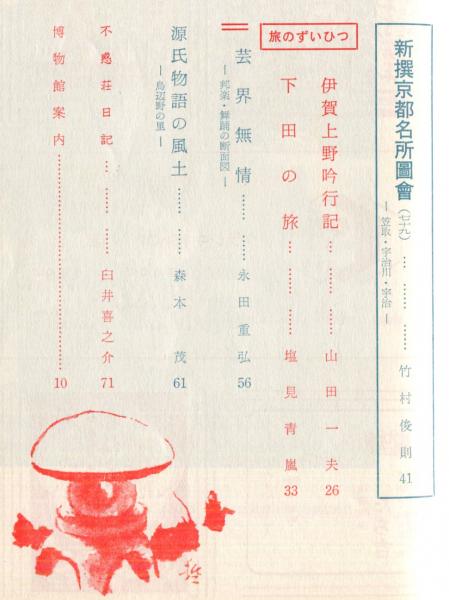 新撰京都名所圖會(七十九)… …… ……竹村俊則 41
―笠取・宇治川・宇治―
旅のずいひつ
伊賀上野吟行記… ……… ………山田一夫 26
下田の旅… ……… ………塩見青嵐 33
芸界無情…… ……永田重弘 56
―邦楽・舞踊の断面図―
源氏物語の風土…… ……森本茂 61
―鳥辺野の里―
不惑荘日記… …… ……臼井喜之介 71
博物館案内……………………………10